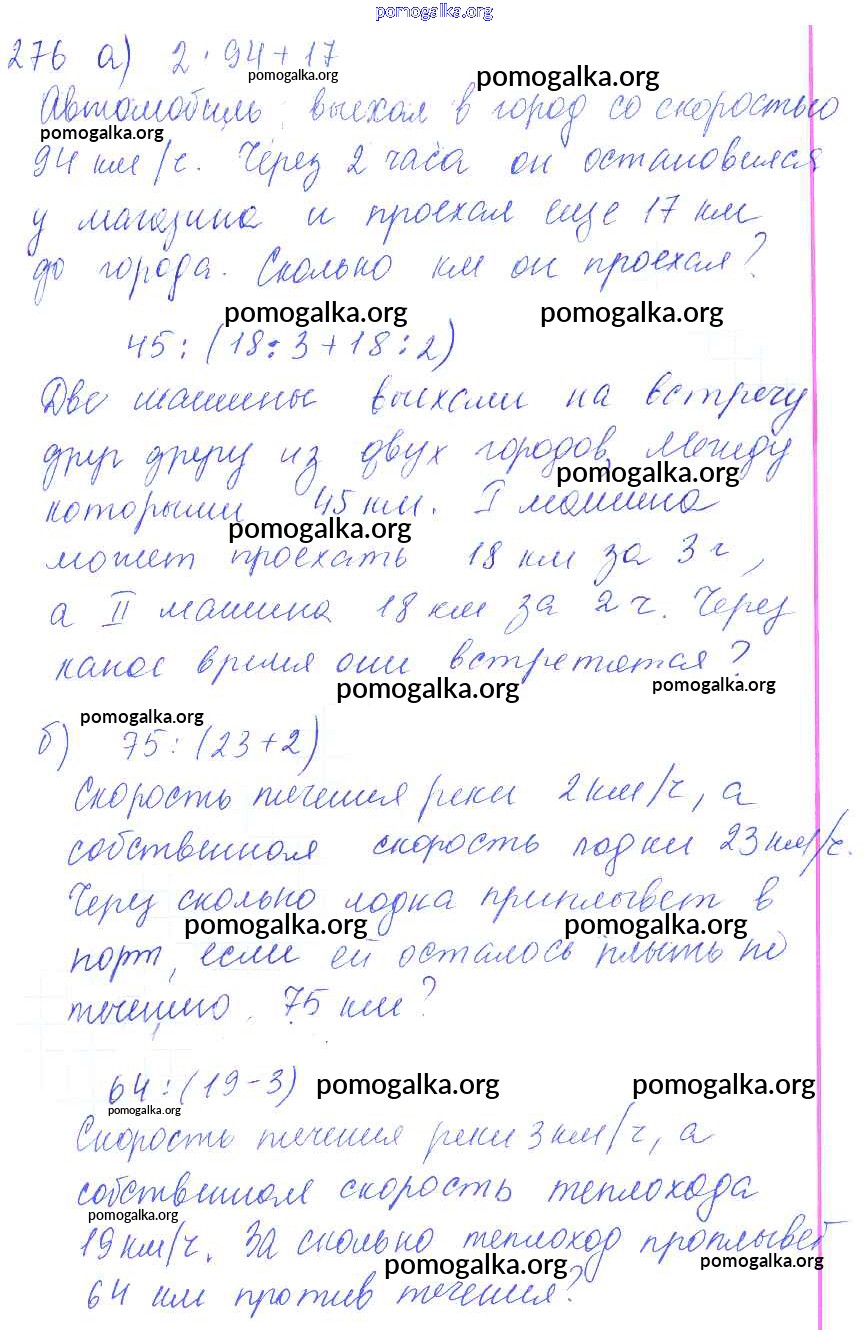 pomogalka.org
276 а) 2 · 94 + 17
pomogalka.org
pomogalka.org
Автомобиль выехал в город со скоростью
pomogalka.org
94 км/ч. Через 2 часа он остановился
у магазина и проехал еще 17 км
до города. Сколько км он проехал?
pomogalka.org
pomogalka.org
45 : (18 : 3 + 18 : 2)
Две машины выехали на встречу
друг другу из двух городов, между
pomogalka.org
которыми 45 км. I машина
pomogalka.org
может проехать 18 км за 3 ч,
а II машина 18 км за 2 ч. Через
какое время они встретятся?
pomogalka.org
pomogalka.org
pomogalka.org
б) 75 : (23 + 2)
Скорость течения реки 2 км/ч, а
собственная скорость лодки 23 км/ч.
Через сколько лодка приплывет в
pomogalka.org
pomogalka.org
порт, если ей осталось плыть по
течению 75 км?
64 : (19 - 3)
pomogalka.org
pomogalka.org
pomogalka.org
Скорость течения реки 3 км/ч, а
собственная скорость теплохода
pomogalka.org
19 км/ч. За сколько теплоход проплывет
pomogalka.org
pomogalka.org
64 км против течения?